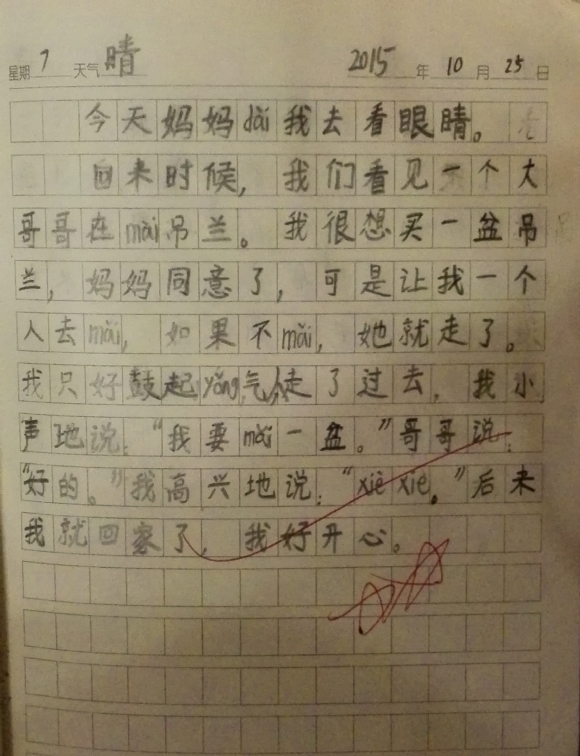 星期 7 天气 晴 2015 年 10 月 25 日
今天妈妈dài我去看眼睛。
回来时候,我们看见一个大
哥哥在mài吊兰。我很想买一盆吊
兰,妈妈同意了,可是让我一个
人去mǎi,如果不mǎi,她就走了。
我只好鼓起yǒng气走了过去,我小
声地说:“我要mǎi一盆。”哥哥说:
“好的。”我高兴地说:“xiè xie。”后来
我就回家了,我好开心。